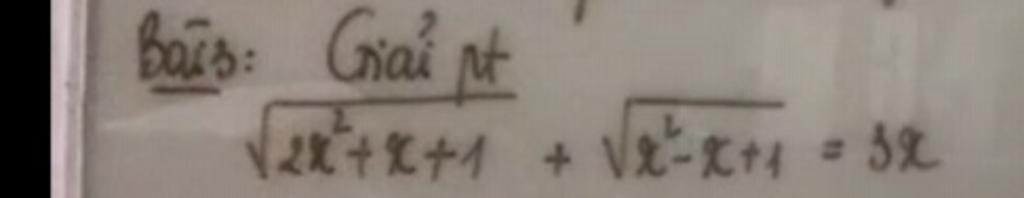 Bài 3: Giải pt
√(2x²+x+1) + √(x²-x+1) = 3x